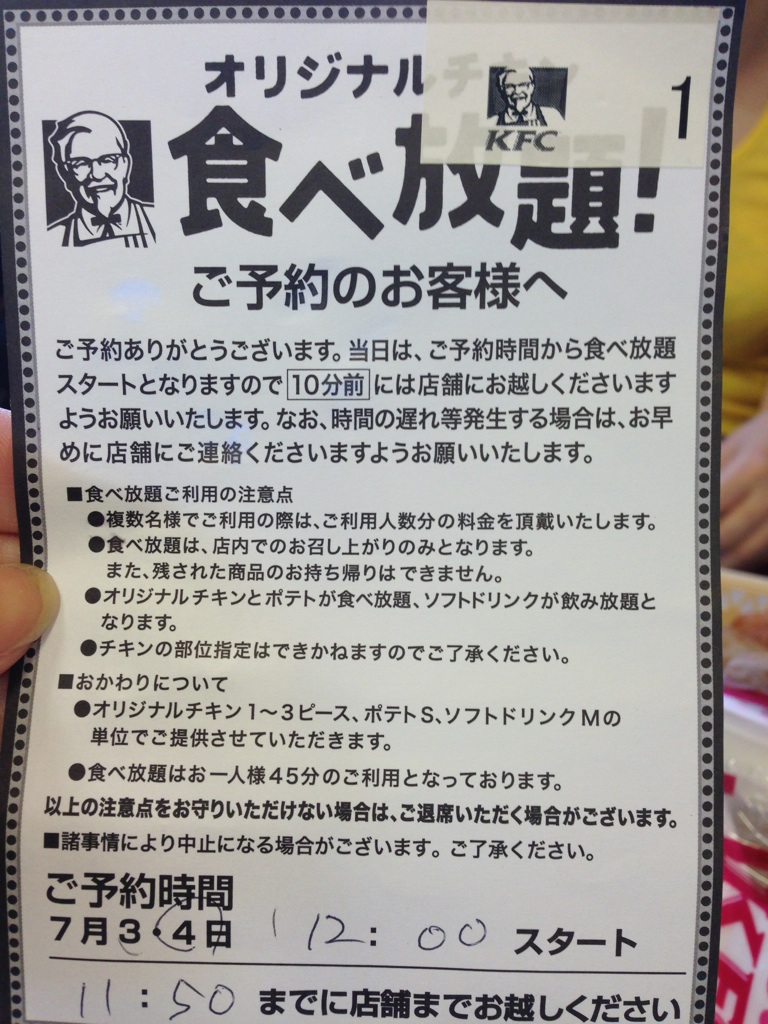 オリジナルチキン
KFC
1
食べ放題!
ご予約のお客様へ
ご予約ありがとうございます。当日は、ご予約時間から食べ放題
スタートとなりますので10分前には店舗にお越しくださいます
ようお願いいたします。なお、時間の遅れ等発生する場合は、お早
めに店舗にご連絡くださいますようお願いいたします。
■食べ放題ご利用の注意点
●複数名様でご利用の際は、ご利用人数分の料金を頂戴いたします。
●食べ放題は、店内でのお召し上がりのみとなります。
また、残された商品のお持ち帰りはできません。
●オリジナルチキンとポテトが食べ放題、ソフトドリンクが飲み放題と
なります。
●チキンの部位指定はできかねますのでご了承ください。
■おかわりについて
●オリジナルチキン1〜3ピース、ポテトS、ソフトドリンクMの
単位でご提供させていただきます。
●食べ放題はお一人様45分のご利用となっております。
以上の注意点をお守りいただけない場合は、ご退席いただく場合がございます。
■諸事情により中止になる場合がございます。ご了承ください。
ご予約時間
7月3・4日 12:00 スタート
11:50 までに店舗までお越しください